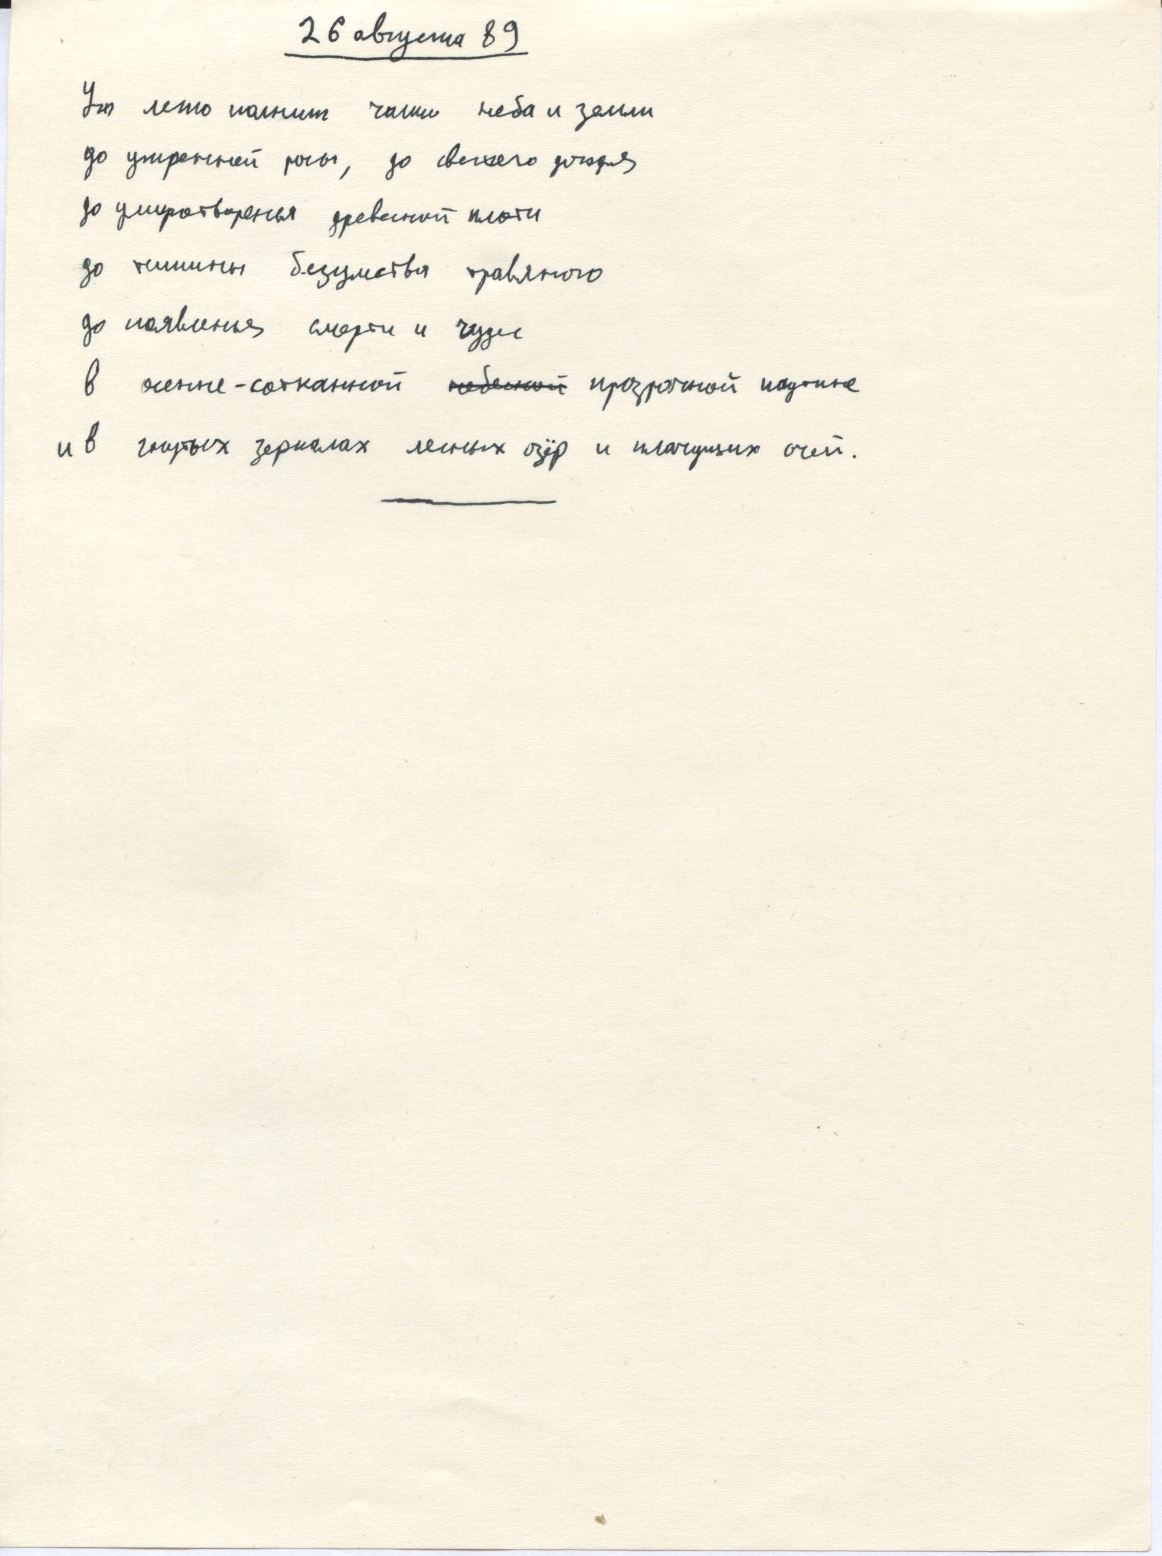 26 августа 89
Уж лето полнит чаши неба и земли
до утренней росы, до свежего дождя
до умиротворенья древесной плоти
до тишины безумства травяного
до появленья смерти и чуда
в осенне-сотканной небесной прозрачной паутине
и в зеркалах лесных озёр и плачущих очей.